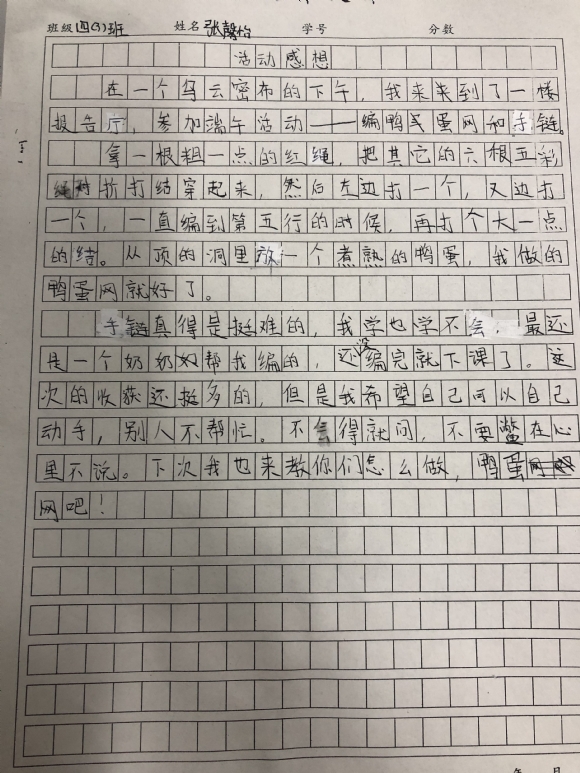 班级 四(3)班 姓名 张馨怡 学号 分数
活动感想
在一个乌云密布的下午，我来来到了一楼
报告厅，参加端午活动——编鸭蛋网和手链。
拿一根粗一点的红绳，把其它的六根五彩
绳对折打结穿起来，然后左边打一个，又边打
一个，一直编到第五行的时候，再打个大一点
的结。从顶的洞里放一个煮熟的鸭蛋，我做的
鸭蛋网就好了。
手链真得是挺难的，我学也学不会，最还
是一个奶奶帮我编的，还没编完就下课了。这
次的收获还挺多的，但是我希望自己可以自己
动手，别人不帮忙。不会得就问，不要憋在心
里不说。下次我也来教你们怎么做，鸭蛋
网吧！
年 月